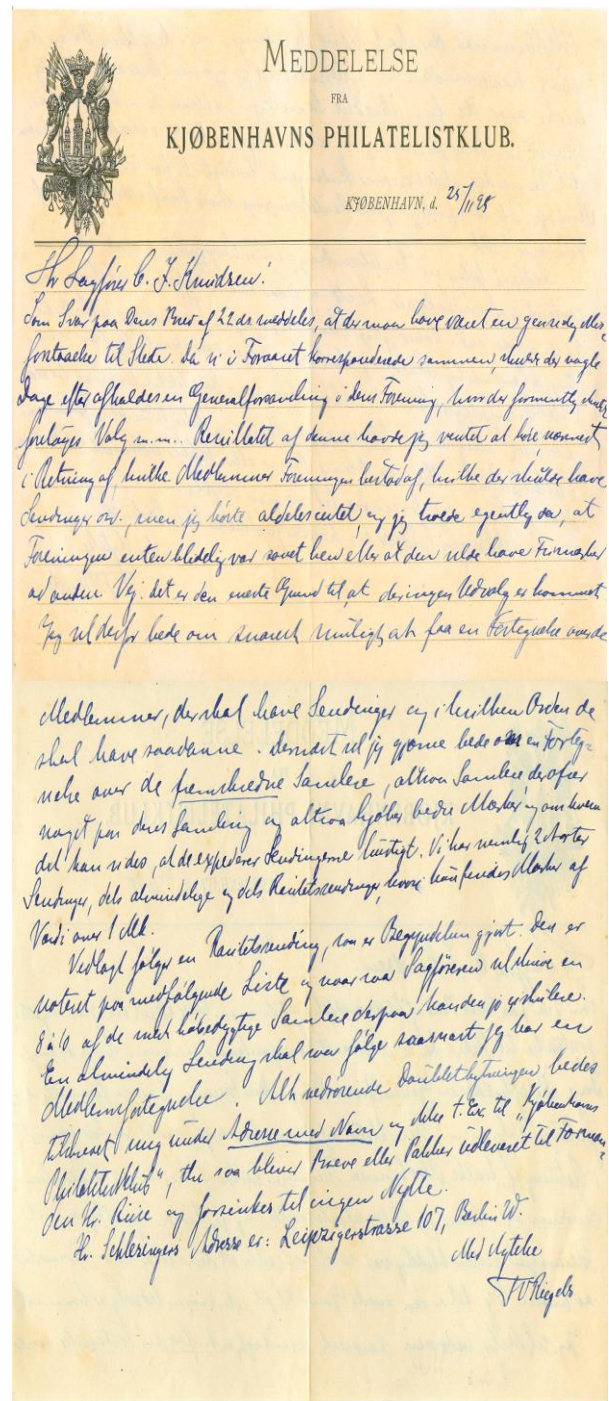 MEDDELELSE
FRA
KJØBENHAVNS PHILATELISTKLUB.
KJØBENHAVN, d. 25/11 95
Hr Sagfører C. J. Knudsen!
Som Svar paa Deres Brev af 22 ds meddeles, at der maa have været en gensidig Mis-
forstaaelse til Stede. Da vi i Foraaret korresponderede sammen, skulde der nogle
Dage efter afholdes en Generalforsamling i deres Forening, hvor der formentlig skulde
foretages Valg m.m.. Resultatet af denne havde jeg ventet at høre nærmest
i Retning af, hvilke Medlemmer Foreningen bestod af, hvilke der skulde have
Sendinger osv., men jeg hørte aldeles intet, og jeg troede egentlig da, at
Foreningen enten var sovet hen eller at den vilde have Frimærker
ad anden Vej. det er den eneste Grund til, at der ingen Udvalg er kommet
Jeg vil derfor bede om snarest muligt at faa en Fortegnelse over de
Medlemmer, der skal have Sendinger og i hvilken Orden de
skal have saadanne. Dernæst vil jeg gjerne bede om en Forteg-
nelse over de fremskredne Samlere, altsaa Samlere der ofrer
noget paa deres Samling og altsaa kjøber bedre Mærker og om hvem
det kan vides, at de expederer Sendingerne hurtigt. Vi har nemlig 2 Sorter
Sendinger, dels almindelige og dels Raritetssendinger, hvori kun findes Mærker af
Værdi over 1 Mk.
Vedlagt følger en Raritetssending, som er Begyndelsen gjort. Den er
noteret paa medfølgende Liste og naar saa Sagføreren vil skrive en
8 à 10 af de mest Samlere derpaa kan den jo cirkulere.
En almindelig Sending skal saa følge saasnart jeg har en
Medlemsfortegnelse. Alt vedrørende Doubletbytningen bedes
tilskrevet mig under Adresse med Navn og ikke t. Ex. til "Kjøbenhavns
Philatelistklub", thi saa bliver Breve eller Pakker udleveret til Forman-
den Hr. Riise og forsinkes til ingen Nytte.
Hr. Schlesingers Adresse er: Leipzigerstrasse 107, Berlin W.
Med Agtelse
FVRiegels